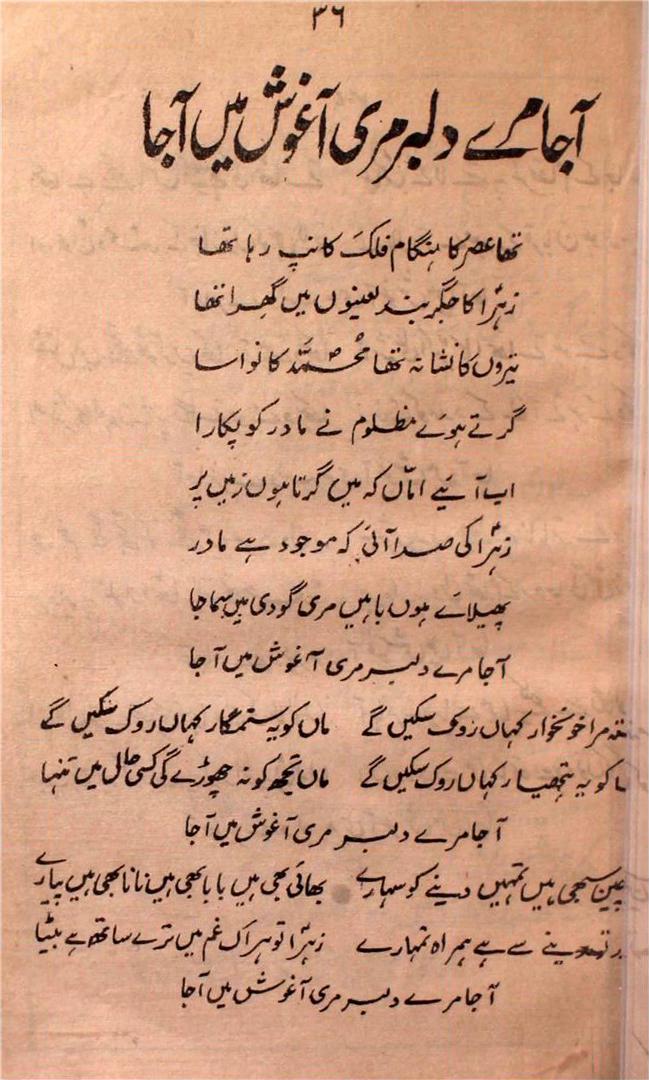 ۳۶
آجا مرے دلبر مری آغوش میں آجا
تھا عصر کا ہنگام فلک کانپ رہا تھا
زہراؑ کا جگر بند لعینوں میں گھرا تھا
تیروں کا نشانہ تھا محمدؐ کا نواسا
گرتے ہوئے مظلوم نے مادر کو پکارا
اب آئیے امّاں کہ میں گرتا ہوں زمیں پر
زہراؑ کی صدا آئی کہ موجود ہے مادر
پھیلائے ہوں باہیں مری گودی میں سما جا
آجا مرے دلبر مری آغوش میں آجا
مرا خونخوار کہاں روک سکیں گے ماں کو یہ ستمگار کہاں روک سکیں گے
کو یہ ہتھیار کہاں روک سکیں گے ماں تجھ کو نہ چھوڑے گی کسی حال میں تنہا
آجا مرے دلبر مری آغوش میں آجا
سبھی ہیں تمہیں دینے کو سہارے بھائی بھی ہیں بابا بھی ہیں نانا بھی ہیں پیارے
سے ہے ہمراہ تمہارے زہراؑ تو ہر اک غم میں ترے ساتھ ہے بیٹا
آجا مرے دلبر مری آغوش میں آجا